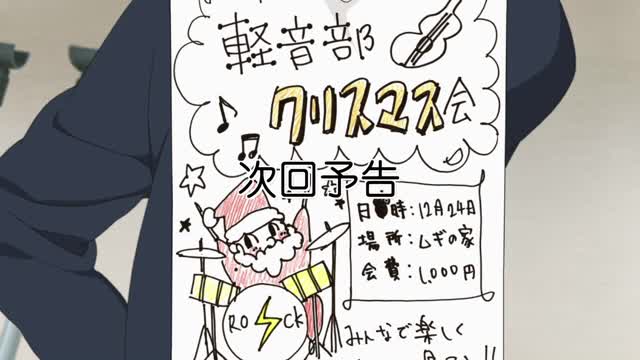 軽音部
クリスマス会
次回予告
日時:12月24日
場所:ムギの家
会費:1,000円
ROCK
みんなで楽しく